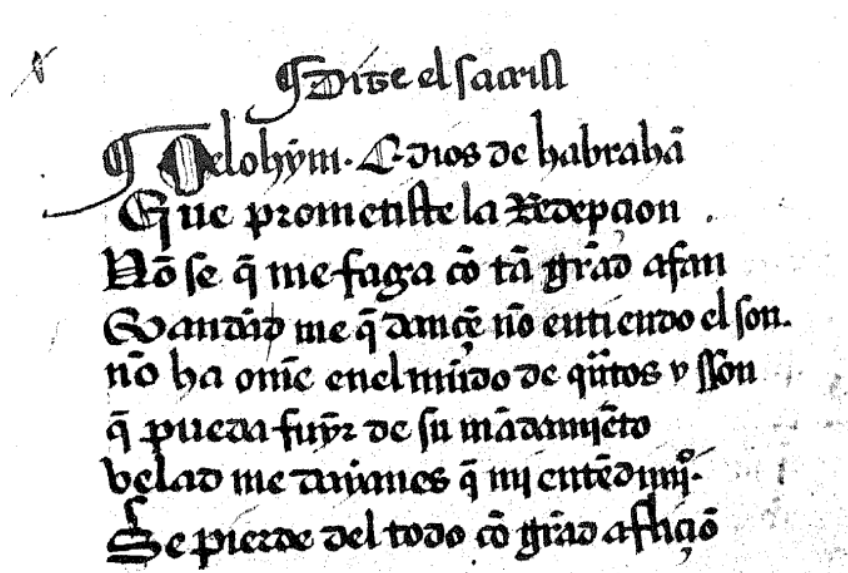 ¶ Dize el
¶ O elohym. E dios de habrahã
Que prometiste la Redepçion
Nõ se q̃ me faga cõ tã grãd afan
Mandãd me q̃ dançẽ nõ entiendo el son.
nõ ha om̃e enel mũdo de qũtos y sson
q̃ pueda fuyr de su mãdamiẽto
velad me dayanes q̃ mi entẽdimiº.
Se pierde del todo cõ grãd afliçiõ